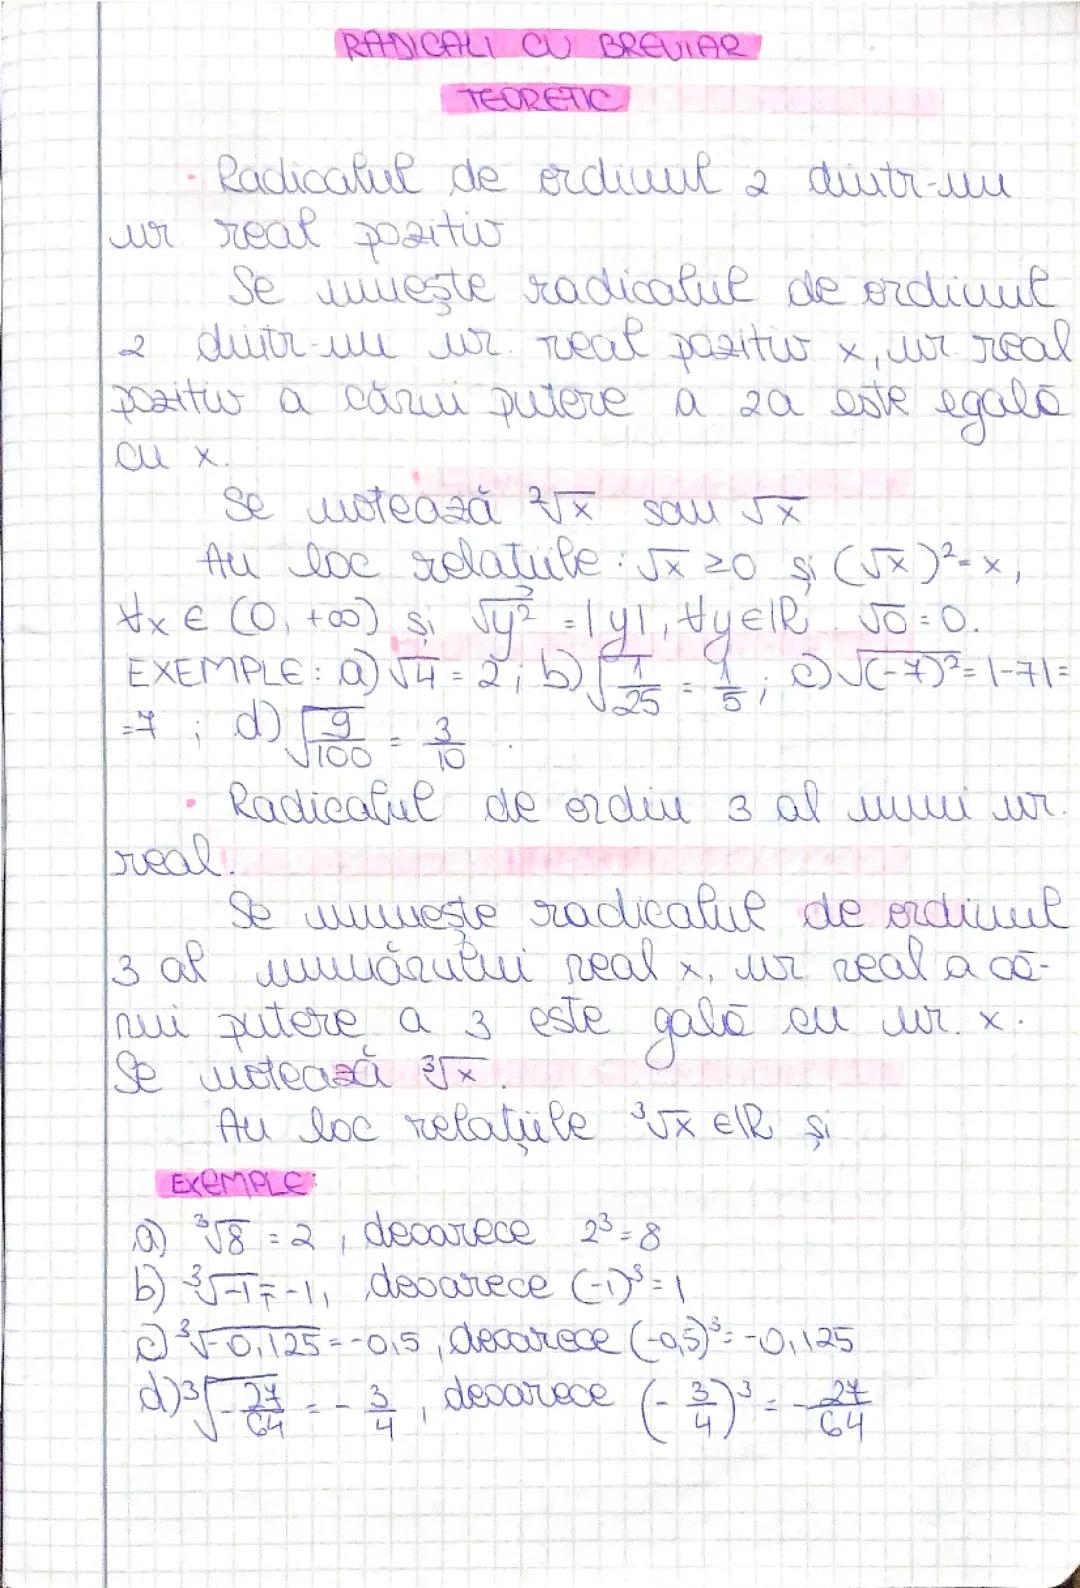 RADICALI CU BREVIAR
TEORETIC
• Radicalul de ordinul 2 dintr-un
nr real pozitiv
Se numește radicalul de ordinul
2 dintr-un nr. real pozitiv x, nr. real
pozitiv a cărui putere a 2a este egală
cu x.
Se notează ²√x sau √x
Au loc relațiile: √x ≥0 și (√x)²=x,
∀x ∈ (0, +∞) și √y² = |y|, ∀y∈ℝ. √0=0.
EXEMPLE: a) √4 = 2; b) √(1/25) = 1/5; c) √(-7)² = |-7| =
=7 ; d) √(9/100) = 3/10 .
• Radicalul de ordin 3 al unui nr.
real.
Se numește radicalul de ordinul
3 al numărului real x, nr real a că-
rui putere a 3 este gală cu nr. x.
Se notează ³√x.
Au loc relațiile ³√x ∈ℝ și
EXEMPLE:
a) ³√8 = 2, deoarece 2³=8
b) ³√-1 = -1, deoarece (-1)³=1
c) ³√-0,125 = -0,5, deoarece (-0,5)³= -0,125
d) ³√(-27/64) = - 3/4, deoarece (- 3/4)³ = - 27/64